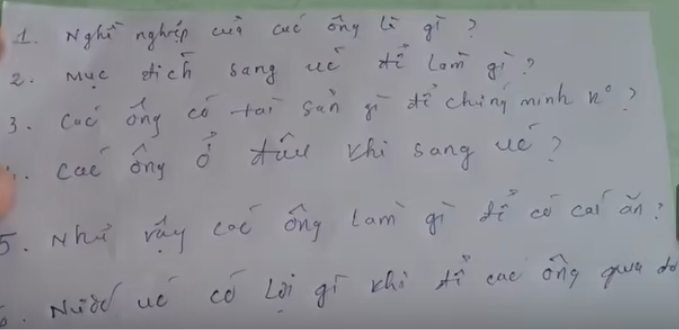 1. Nghề nghiệp của các ông là gì?
2. Mục đích sang úc để làm gì?
3. Các ông có tài sản gì để chứng minh k°?
4. Các ông ở đâu khi sang úc?
5. Như vậy các ông làm gì để có cái ăn?
6. Nước úc có lợi gì khi để các ông qua đó